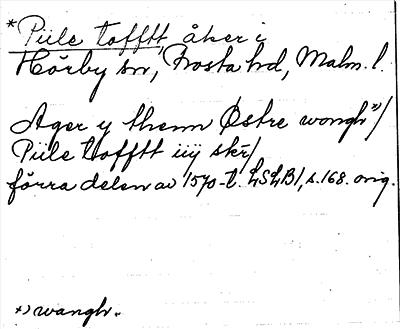 *Piile tofftt, åker i
Hörby sn, Frosta hd, Malm. l.
Ager y thenn Østre wongh*)/
Piile tofftt iiij skr/
förra delen av 1570-t. LSLB1, s. 168. orig.
*) wangh.